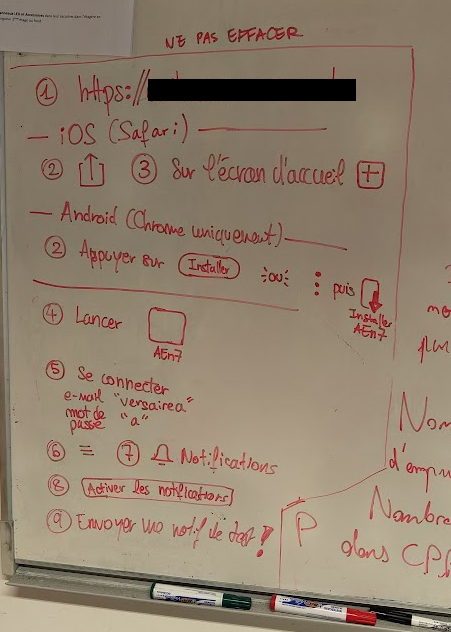 NE PAS EFFACER
① https://
— iOS (Safari) —
② ③ Sur l'écran d'accueil +
— Android (Chrome uniquement) —
② Appuyer sur Installer ou ⋮ puis
Installer
AEn7
④ Lancer
AEn7
⑤ Se connecter
e-mail "versairea"
mot de
passe "a"
⑥ ≡ ⑦ Notifications
⑧ Activer les notifications
⑨ Envoyer une notif de test !
P
Nom
d'empru
Nombre
dans CPR